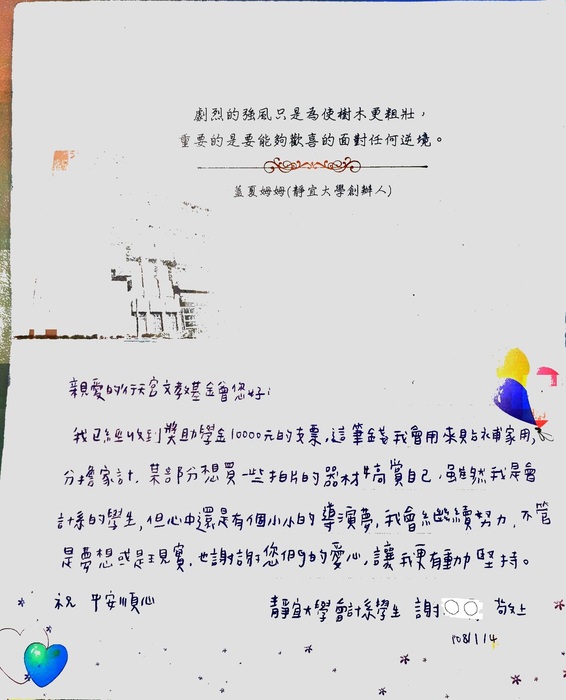 劇烈的強風只是為使樹木更粗壯，
重要的是要能夠歡喜的面對任何逆境。
蓋夏姆姆(靜宜大學創辦人)
親愛的行天宮文教基金會您好：
我已經收到獎助學金10000元的支票，這筆錢我會用來貼補家用，
分擔家計，某部分想買一些拍片的器材犒賞自己，雖然我是會
計系的學生，但心中還是有個小小的導演夢，我會繼續努力，不管
是夢想或是現實，也謝謝您們的愛心，讓我更有動力堅持。
祝 平安順心
靜宜大學會計系學生 謝○○ 敬上
108/1/14